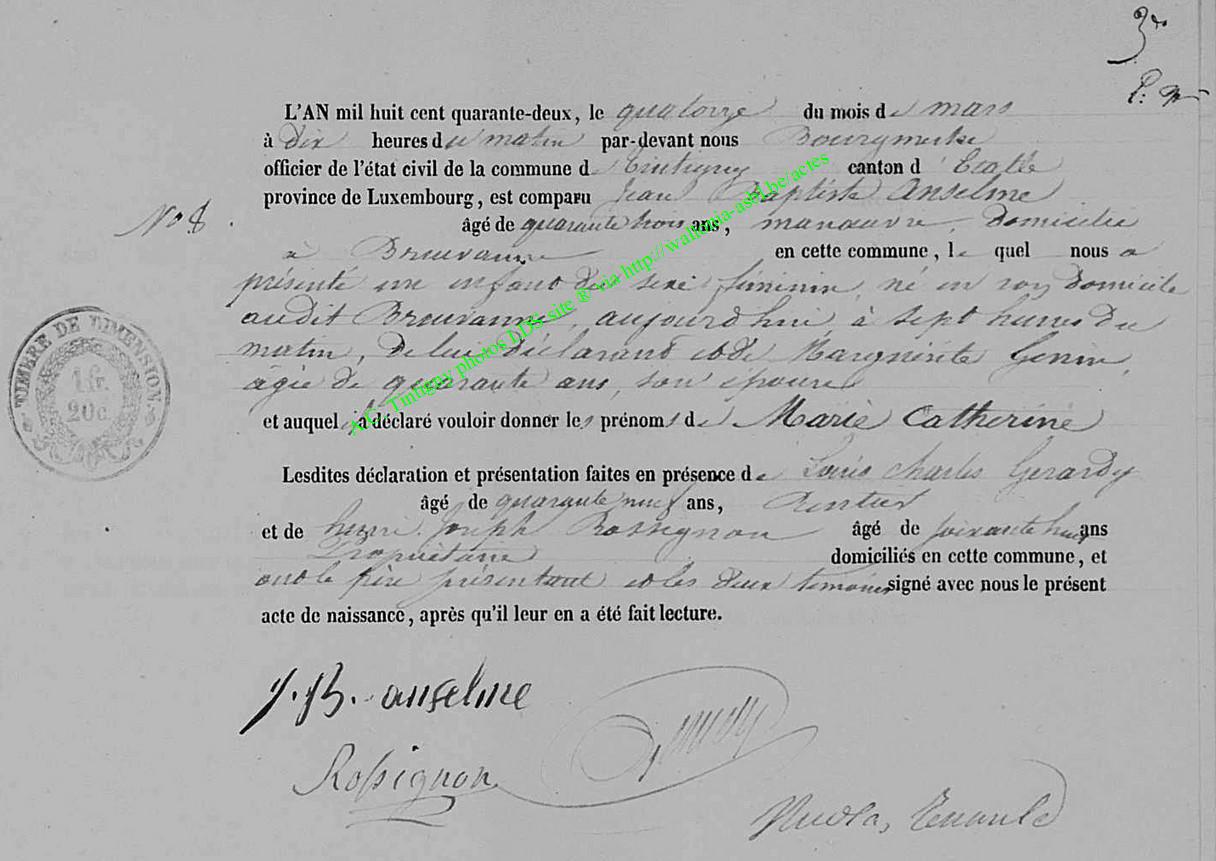 3
L'AN mil huit cent quarante-deux, le quatorze du mois de mars
à dix heures du matin par-devant nous Bourgmestre
officier de l'état civil de la commune de Tintigny canton d'Etalle
province de Luxembourg, est comparu Jean Baptiste Anselme
No 8.
âgé de quarante trois ans, manoeuvre, domicilié
à Breuvanne en cette commune, le quel nous a
présenté un enfant du sexe féminin, né en son domicile
audit Breuvanne, aujourd'hui, à sept heures du
matin, de lui déclarant et de Marguerite Genin,
âgée de quarante ans, son épouse
et auquel il a déclaré vouloir donner les prénoms de Marie Catherine
Lesdites déclaration et présentation faites en présence de Louis Charles Gerardy
âgé de quarante neuf ans, Rentier
et de henri Joseph Rossignon âgé de soixante ans
Propriétaire domiciliés en cette commune, et
ont le père présentant et les deux témoins signé avec nous le présent
acte de naissance, après qu'il leur en a été fait lecture.
TIMBRE DE DIMENSION
1 fr.
20 c.
AC Tintigny photos DDS site ® via http://wallonia-asbl.be/actes
J. B. anselme
Rossignon